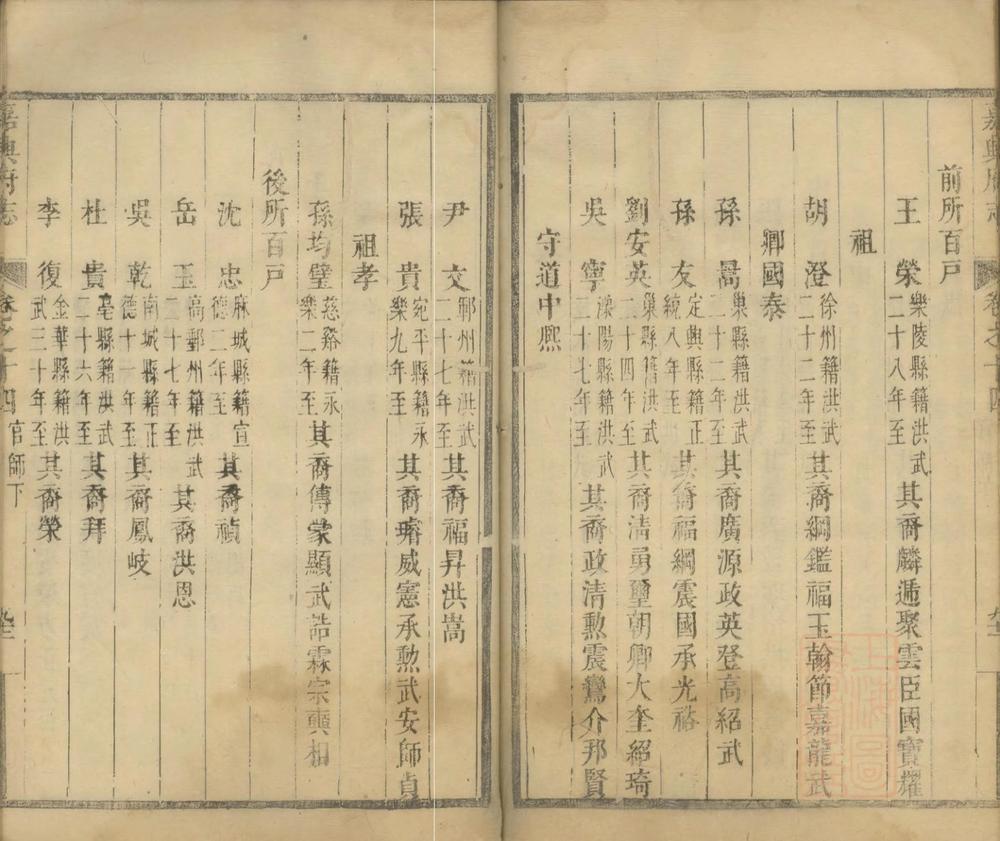 嘉興府志 卷之十四
前所百戶
王榮 樂陵縣籍洪武二十八年至 其裔麟遁聚雲臣國寶燿
祖
胡澄 徐州籍洪武二十二年至 其裔綱鑑福玉翰節嘉龍武
卿國泰
孫暠 巢縣籍洪武二十二年至 其裔廣源政英登高紹武
孫友 定興縣籍正統八年至 其裔福綱震國承光裕
劉安英 巢縣籍洪武二十四年至 其裔清勇璽朝卿大奎紹琦
吳寧 溧陽縣籍洪武二十七年至 其裔政清勲震鸞介邦賢
守道中熙
尹文 鄆州籍洪武二十七年至 其裔福昇洪嵩
張貴 宛平縣籍永樂九年至 其裔璿威憲承勲武安師貞
祖孝
孫均璧 慈谿籍永樂二年至 其裔傳蒙顯武誥霖宗奭相
後所百戶
沈忠 麻城縣籍宣德二年至 其裔禎
岳玉 高郵州籍洪武二十七年至 其裔洪恩
吳乾 南城縣籍正德十一年至 其裔鳳岐
杜貴 亳縣籍洪武二十六年至 其裔拜
李復 金華縣籍洪武三十年至 其裔榮
嘉興府志 卷之十四 官師下